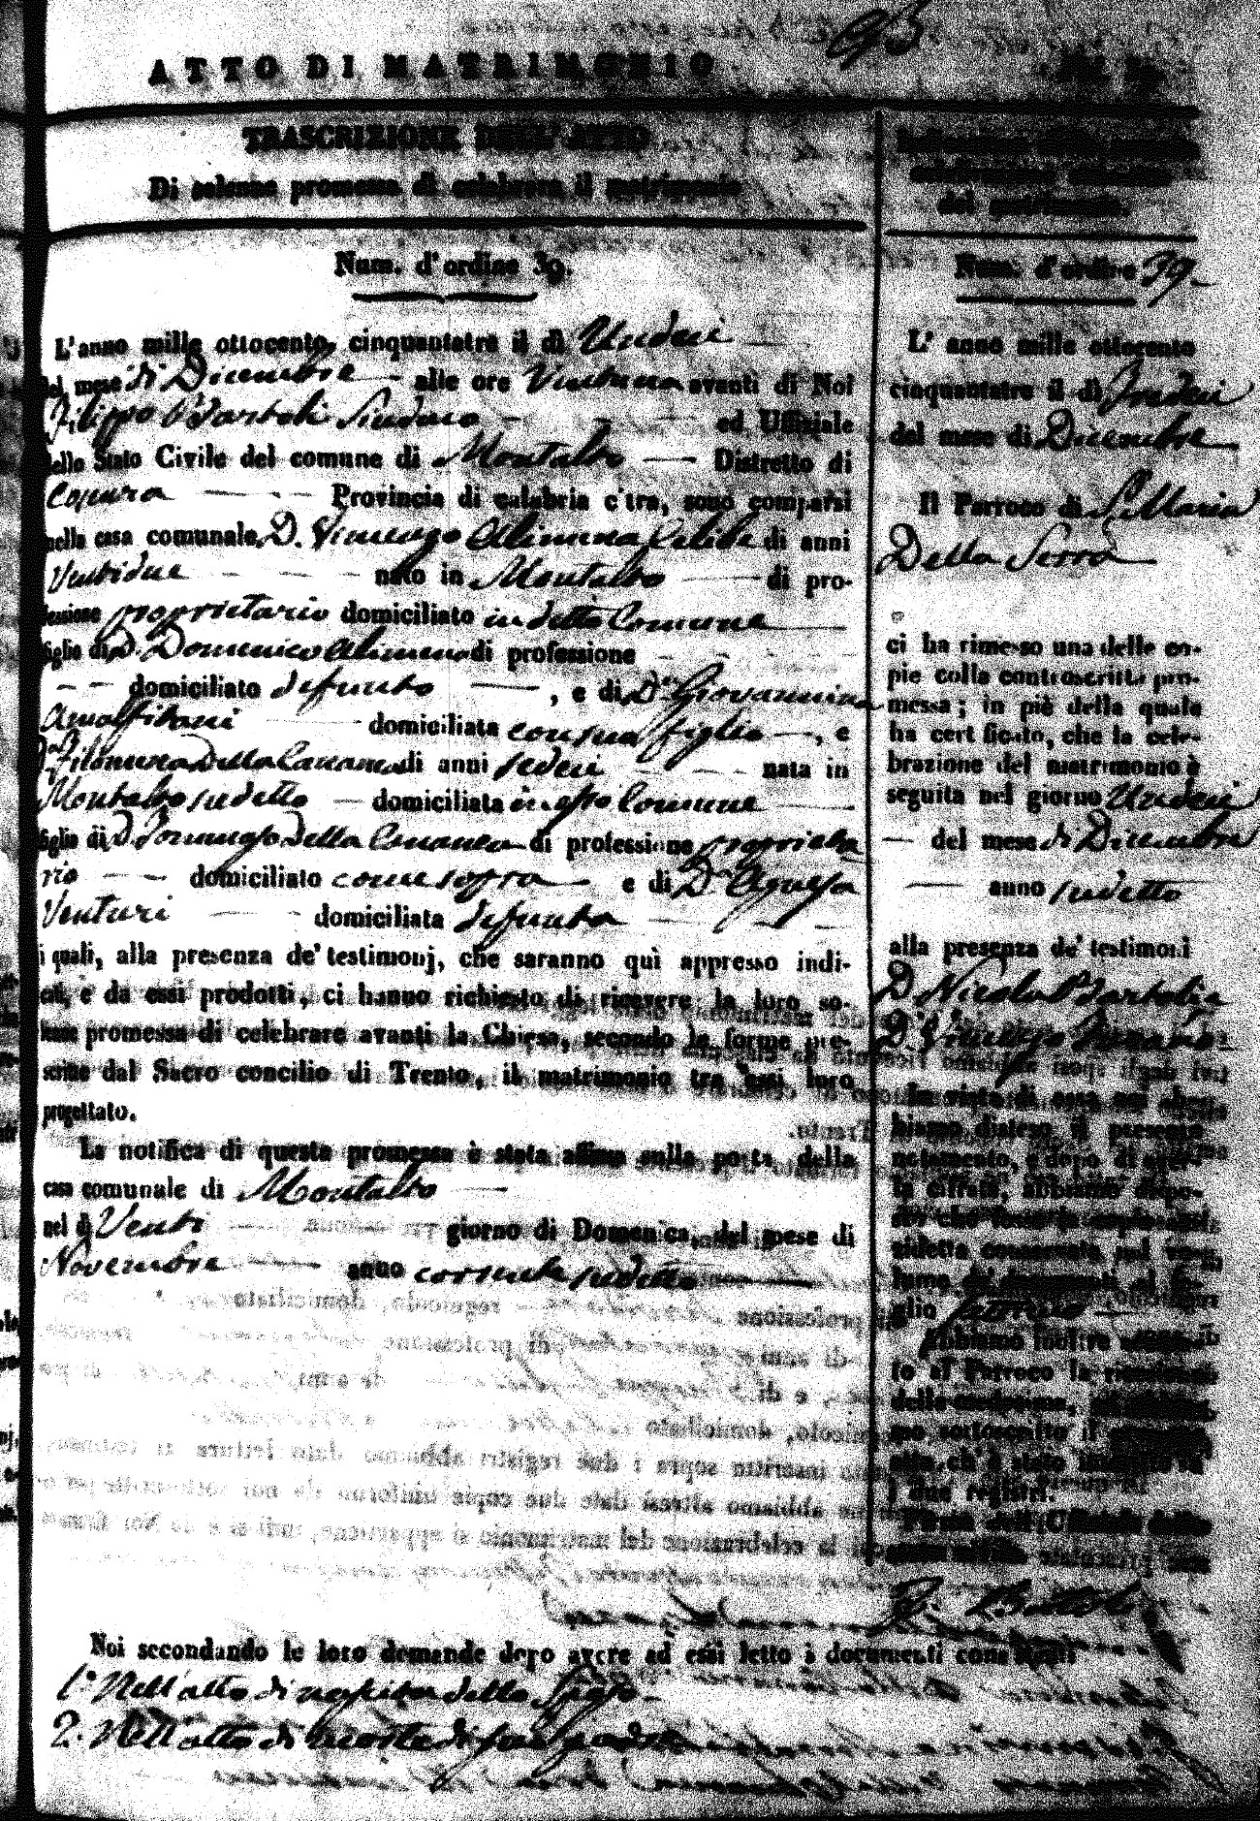 93
ATTO DI MATRIMONIO
TRASCRIZIONE DELL' ATTO
Di solenne promessa di celebrare il matrimonio
Num. d' ordine 39.
L' anno mille ottocento cinquantatre il dì Undeci
del mese di Dicembre alle ore Ventuna avanti di Noi
Filippo Bartoli Sindaco ed Uffiziale
dello Stato Civile del comune di Montalto Distretto di
Cosenza Provincia di calabria citra, sono comparsi
nella casa comunale D. Vincenzo Alimena Celibe di anni
Ventidue nato in Montalto di pro-
fessione proprietario domiciliato in detto Comune
figlio di D. Domenico Alimena di professione
domiciliato defunto , e di D.a Giovannina
Amalfitani domiciliata con suo figlio , e
D.a Filomena Della Cananea di anni sedeci nata in
Montalto sudetto domiciliata in esso Comune
figlia di D. Domenico Della Cananea di professione proprieta
rio domiciliato come sopra e di D.a Agnesa
Venturi domiciliata defunta
i quali, alla presenza de' testimonj, che saranno quì appresso indi-
cati, e da essi prodotti, ci hanno richiesto di ricevere la loro so-
lenne promessa di celebrare avanti la Chiesa, secondo le forme pre-
scritte dal Sacro concilio di Trento, il matrimonio tra essi loro
progettato.
La notifica di questa promessa è stata affissa sulla porta della
casa comunale di Montalto
nel dì Venti giorno di Domenica, del mese di
Novembre anno corrente sudetto
Noi secondando le loro domande dopo avere ad essi letto i documenti consistenti
1.° Nell' atto di nascita dello Sposo
2. Nell' atto di morte di suo padre
del matrimonio.
Num. d' ordine 39.
L' anno mille ottocento
cinquantatre il dì Tredeci
del mese di Dicembre
Il Parroco di S. Maria
Della Serra
ci ha rimesso una delle co-
pie colla controscritta pro-
messa; in piè della quale
ha certificato, che la cele-
brazione del matrimonio è
seguita nel giorno Undeci
del mese di Dicembre
anno sudetto
alla presenza de' testimoni
D. Nicola Bartoli e
D. Vincenzo
In vista di essa noi ab-
biamo disteso il presente
notamento, e dopo di aver-
la cifrata, abbiamo dispo-
sto che fosse la copia an-
zidetta conservata nel vo-
lume de' documenti al fo-
glio
Abbiamo inoltre accusa-
to al Parroco la ricezione
della medesima, ed abbia-
mo sottoscritto il presente
atto, ch' è stato inscritto su
i due registri.
Firma dell' Uffiziale dello
F. Bartoli